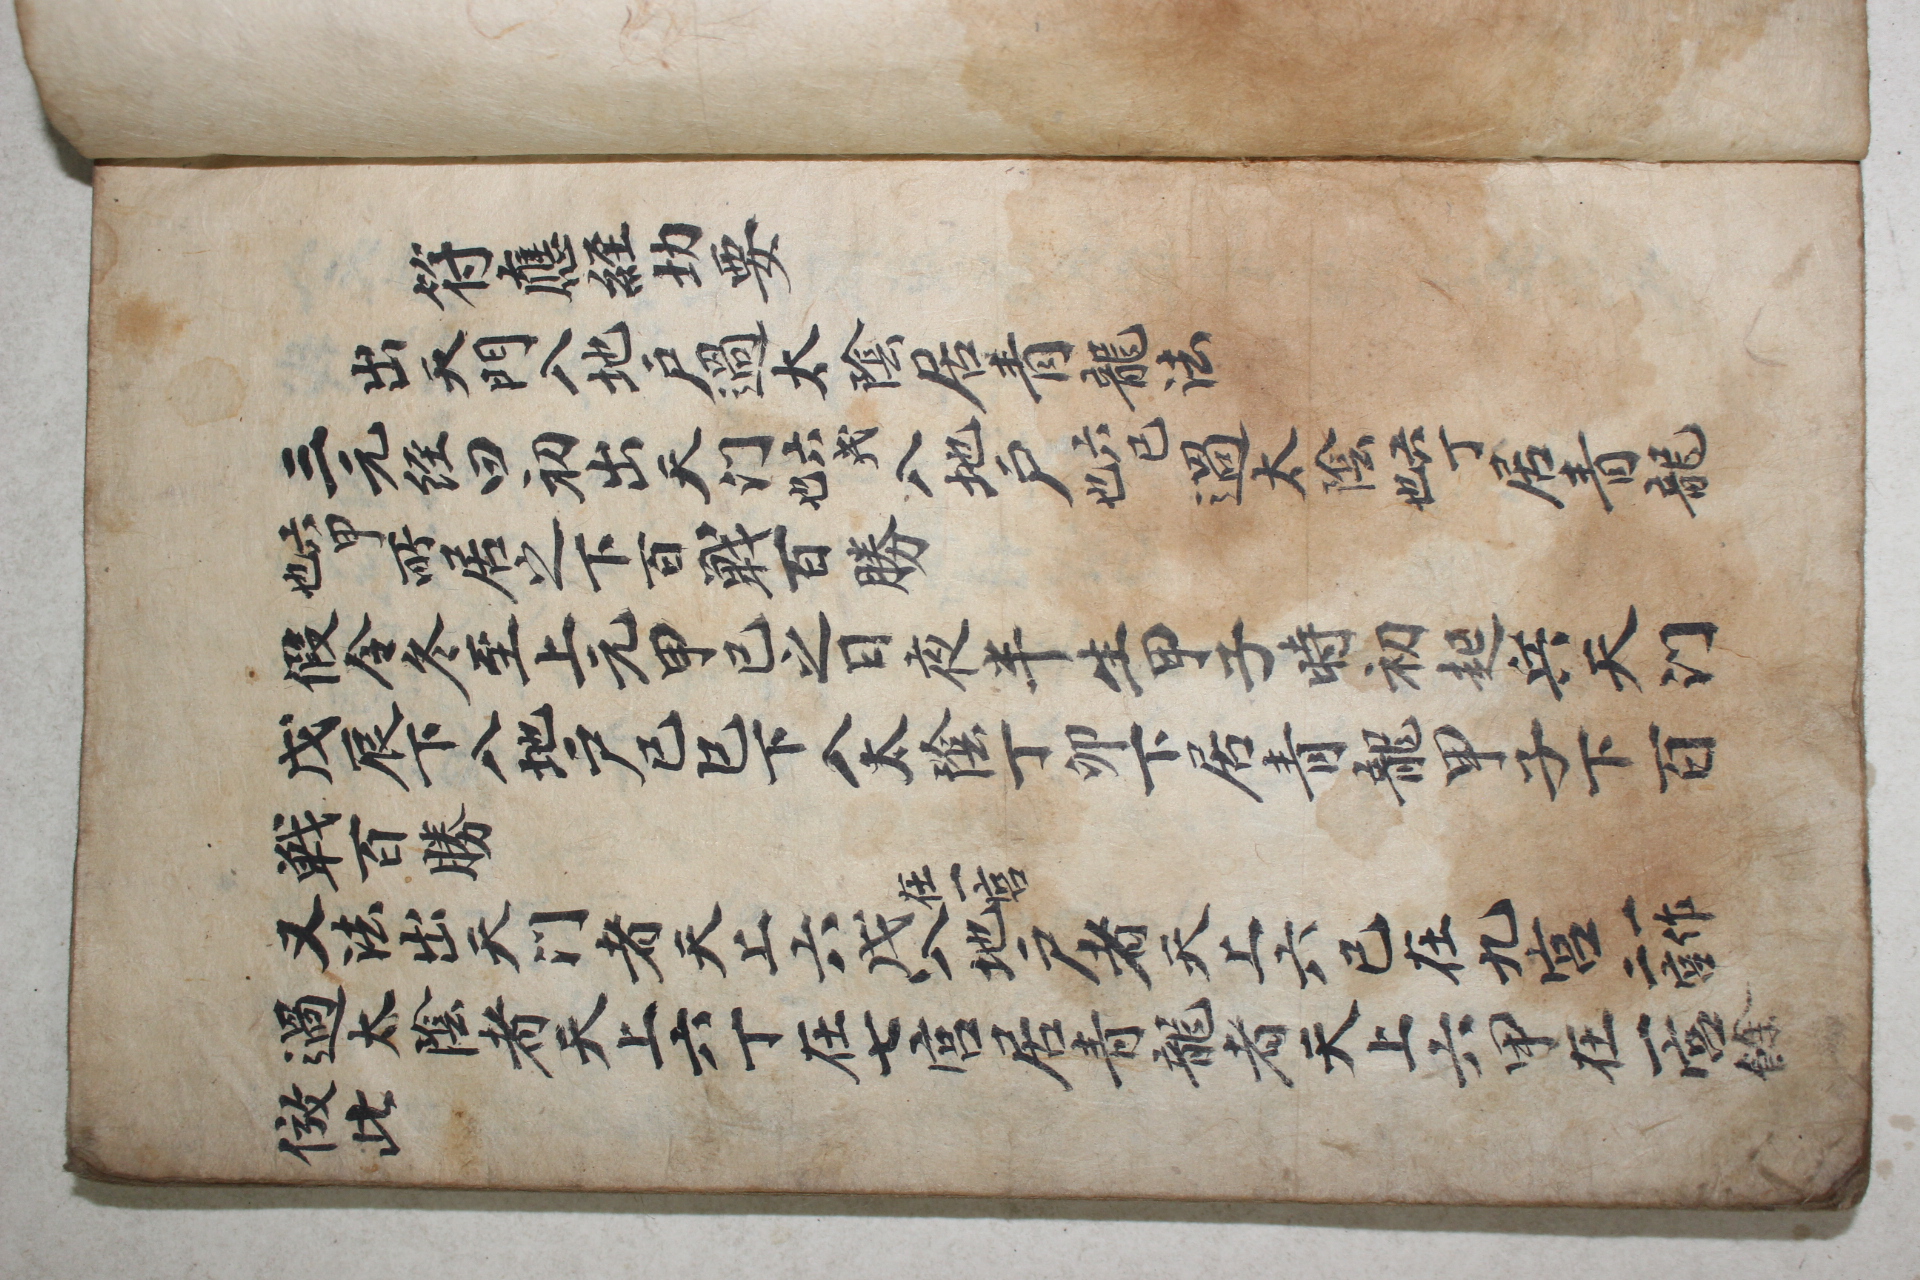 符應経切要
出天門入地戸過太陰居青龍法
三元経曰初出天门六戊也入地戸六己也過太陰六丁也居青龍
六甲也所居之下百戦百勝
假令冬至上元甲己之日夜半生甲子時初起兵天门
戊辰下入地戸己巳下入太陰丁卯下居青龍甲子下百
戦百勝
又法出天门者天上六戊在一宮入地戸者天上六己在九宮一作二宮
過太陰者天上六丁在七宮居青龍者天上六甲在一宮餘
倣此